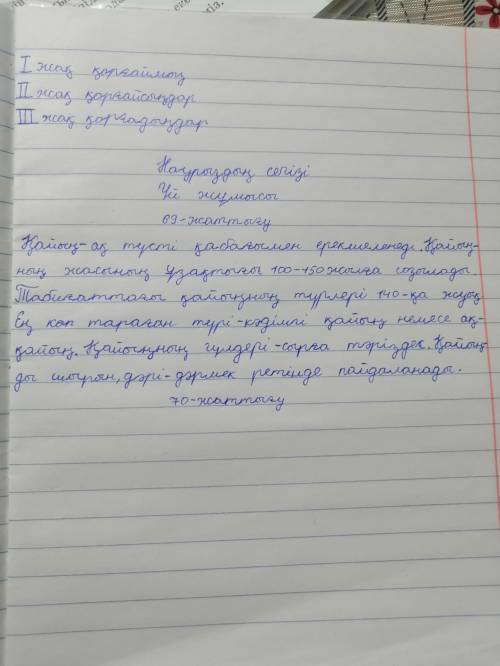 I жақ қорғаймыз
II жақ қорғайсыңдар
III жақ қорғадыңдар
Наурыздың сегізі
Үй жұмысы
69-жаттығу
Қайың-ақ түсті қабағымен ерекшеленеді. Қайың-
ның жасының ұзақтығы 100-150 жылға созылады.
Табиғаттағы қайыңның түрлері 140-қа жуық
Ең көп тараған түрі-кәдімгі қайың немесе ақ-
қайың. Қайыңның гүлдері-сырға тәріздек. Қайың-
ды шырын, дәрі-дәрмек ретінде пайдаланады.
70-жаттығу